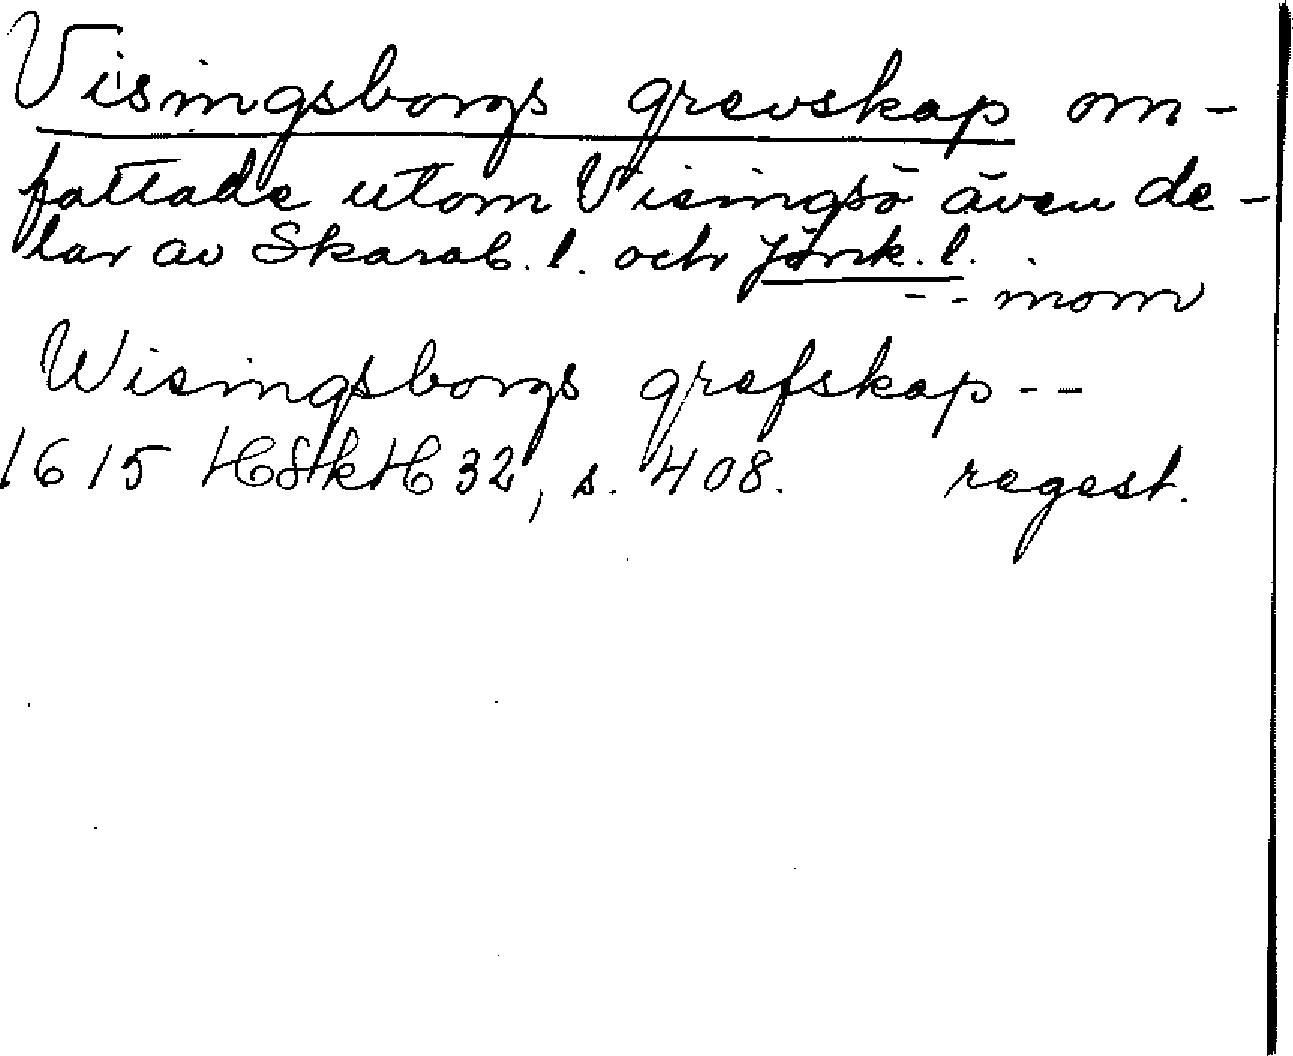 Visingsborgs grevskap om-
fattade utom Visingsö även de-
lar av Skarab. l. och Jönk. l.
-- inom
Wisingsborgs grefskap --
1615 HSkH 32, s. 408. regest.